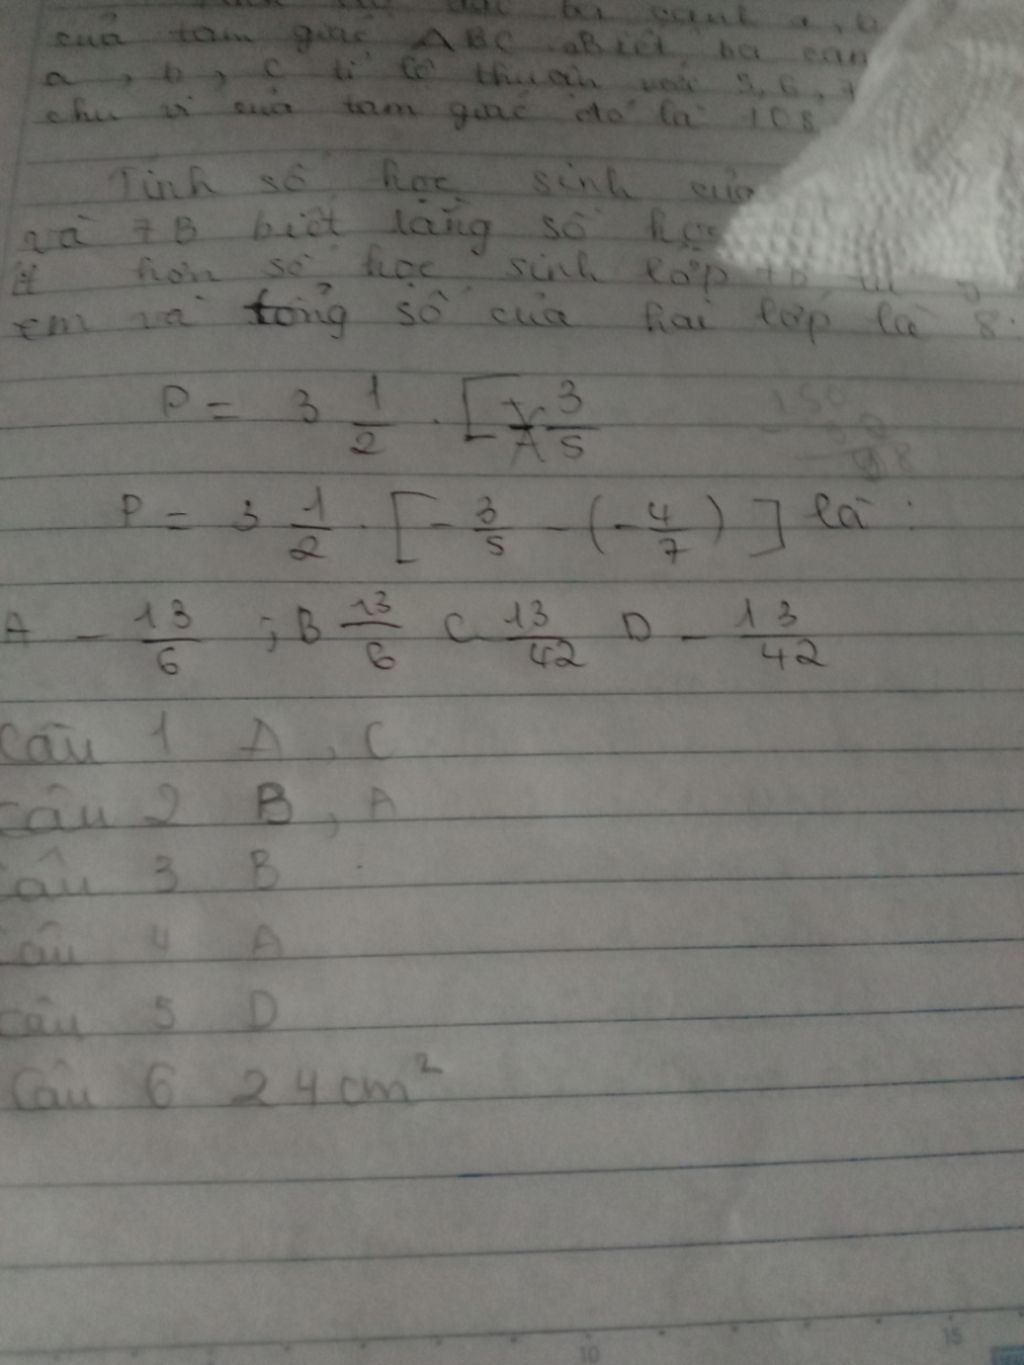 của tam giác ABC. Biết ba cạn
a, b, c tỉ lệ thuận với
chu vi của tam giác đó là 108
Tính số học sinh của
và 7B biết rằng số học
hơn số học sinh lớp 7B là
em và tổng số của hai lớp là 8
P = 3 1/2 . [ 3/5
P = 3 1/2 . [ - 3/5 - ( - 4/7 ) ] là :
A - 13/6 ; B 13/6 C 13/42 D - 13/42
Câu 1 A, C
Câu 2 B, A
Câu 3 B
Câu 4 A
Câu 5 D
Câu 6 24cm²
10 15